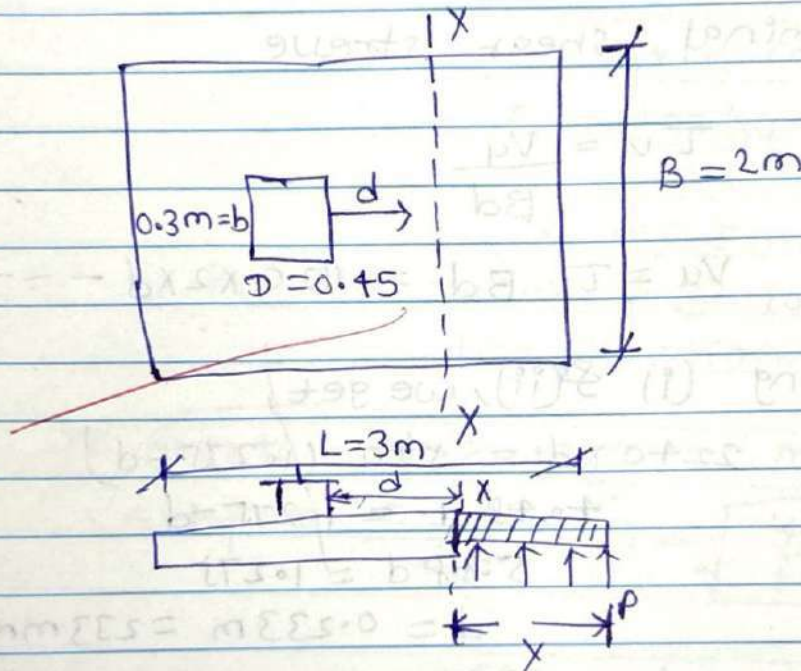 X
B = 2m
0.3m=b
d
D = 0.45
X
L=3m
d
X
P
X